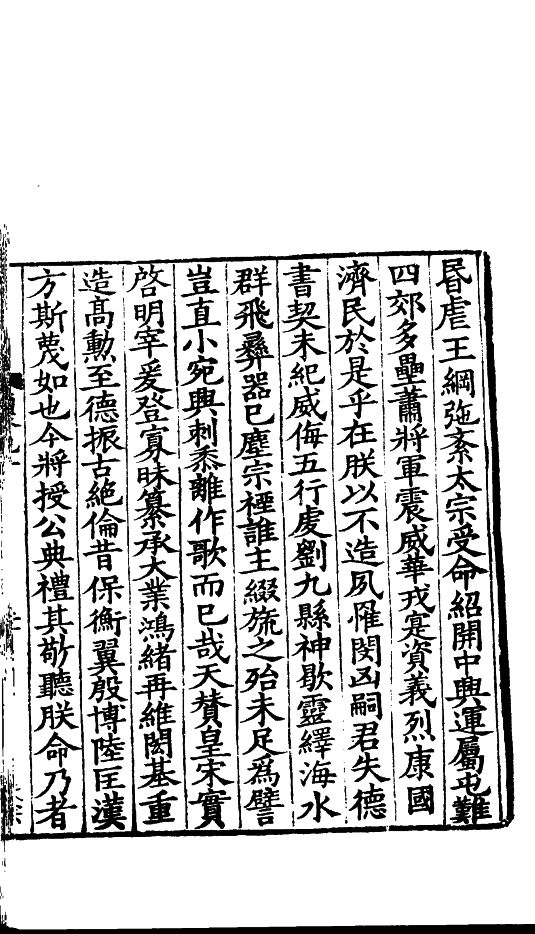 昬虐王綱弛紊太宗受命紹開中興運屬屯難
四郊多壘蕭將軍震威華戎寔資義烈康國
濟民於是乎在朕以不造夙罹閔凶嗣君失德
書契未紀威侮五行虔劉九縣神歇靈繹海水
群飛彞器已塵宗禋誰主綴旒之殆未足爲譬
豈直小宛興刺黍離作歌而已哉天贊皇宋實
啓明宰爰登寡昧纂承大業鴻緒再維閎基重
造高勲至德振古絶倫昔保衡翼殷博陸匡漢
方斯蔑如也今將授公典禮其敬聽朕命乃者